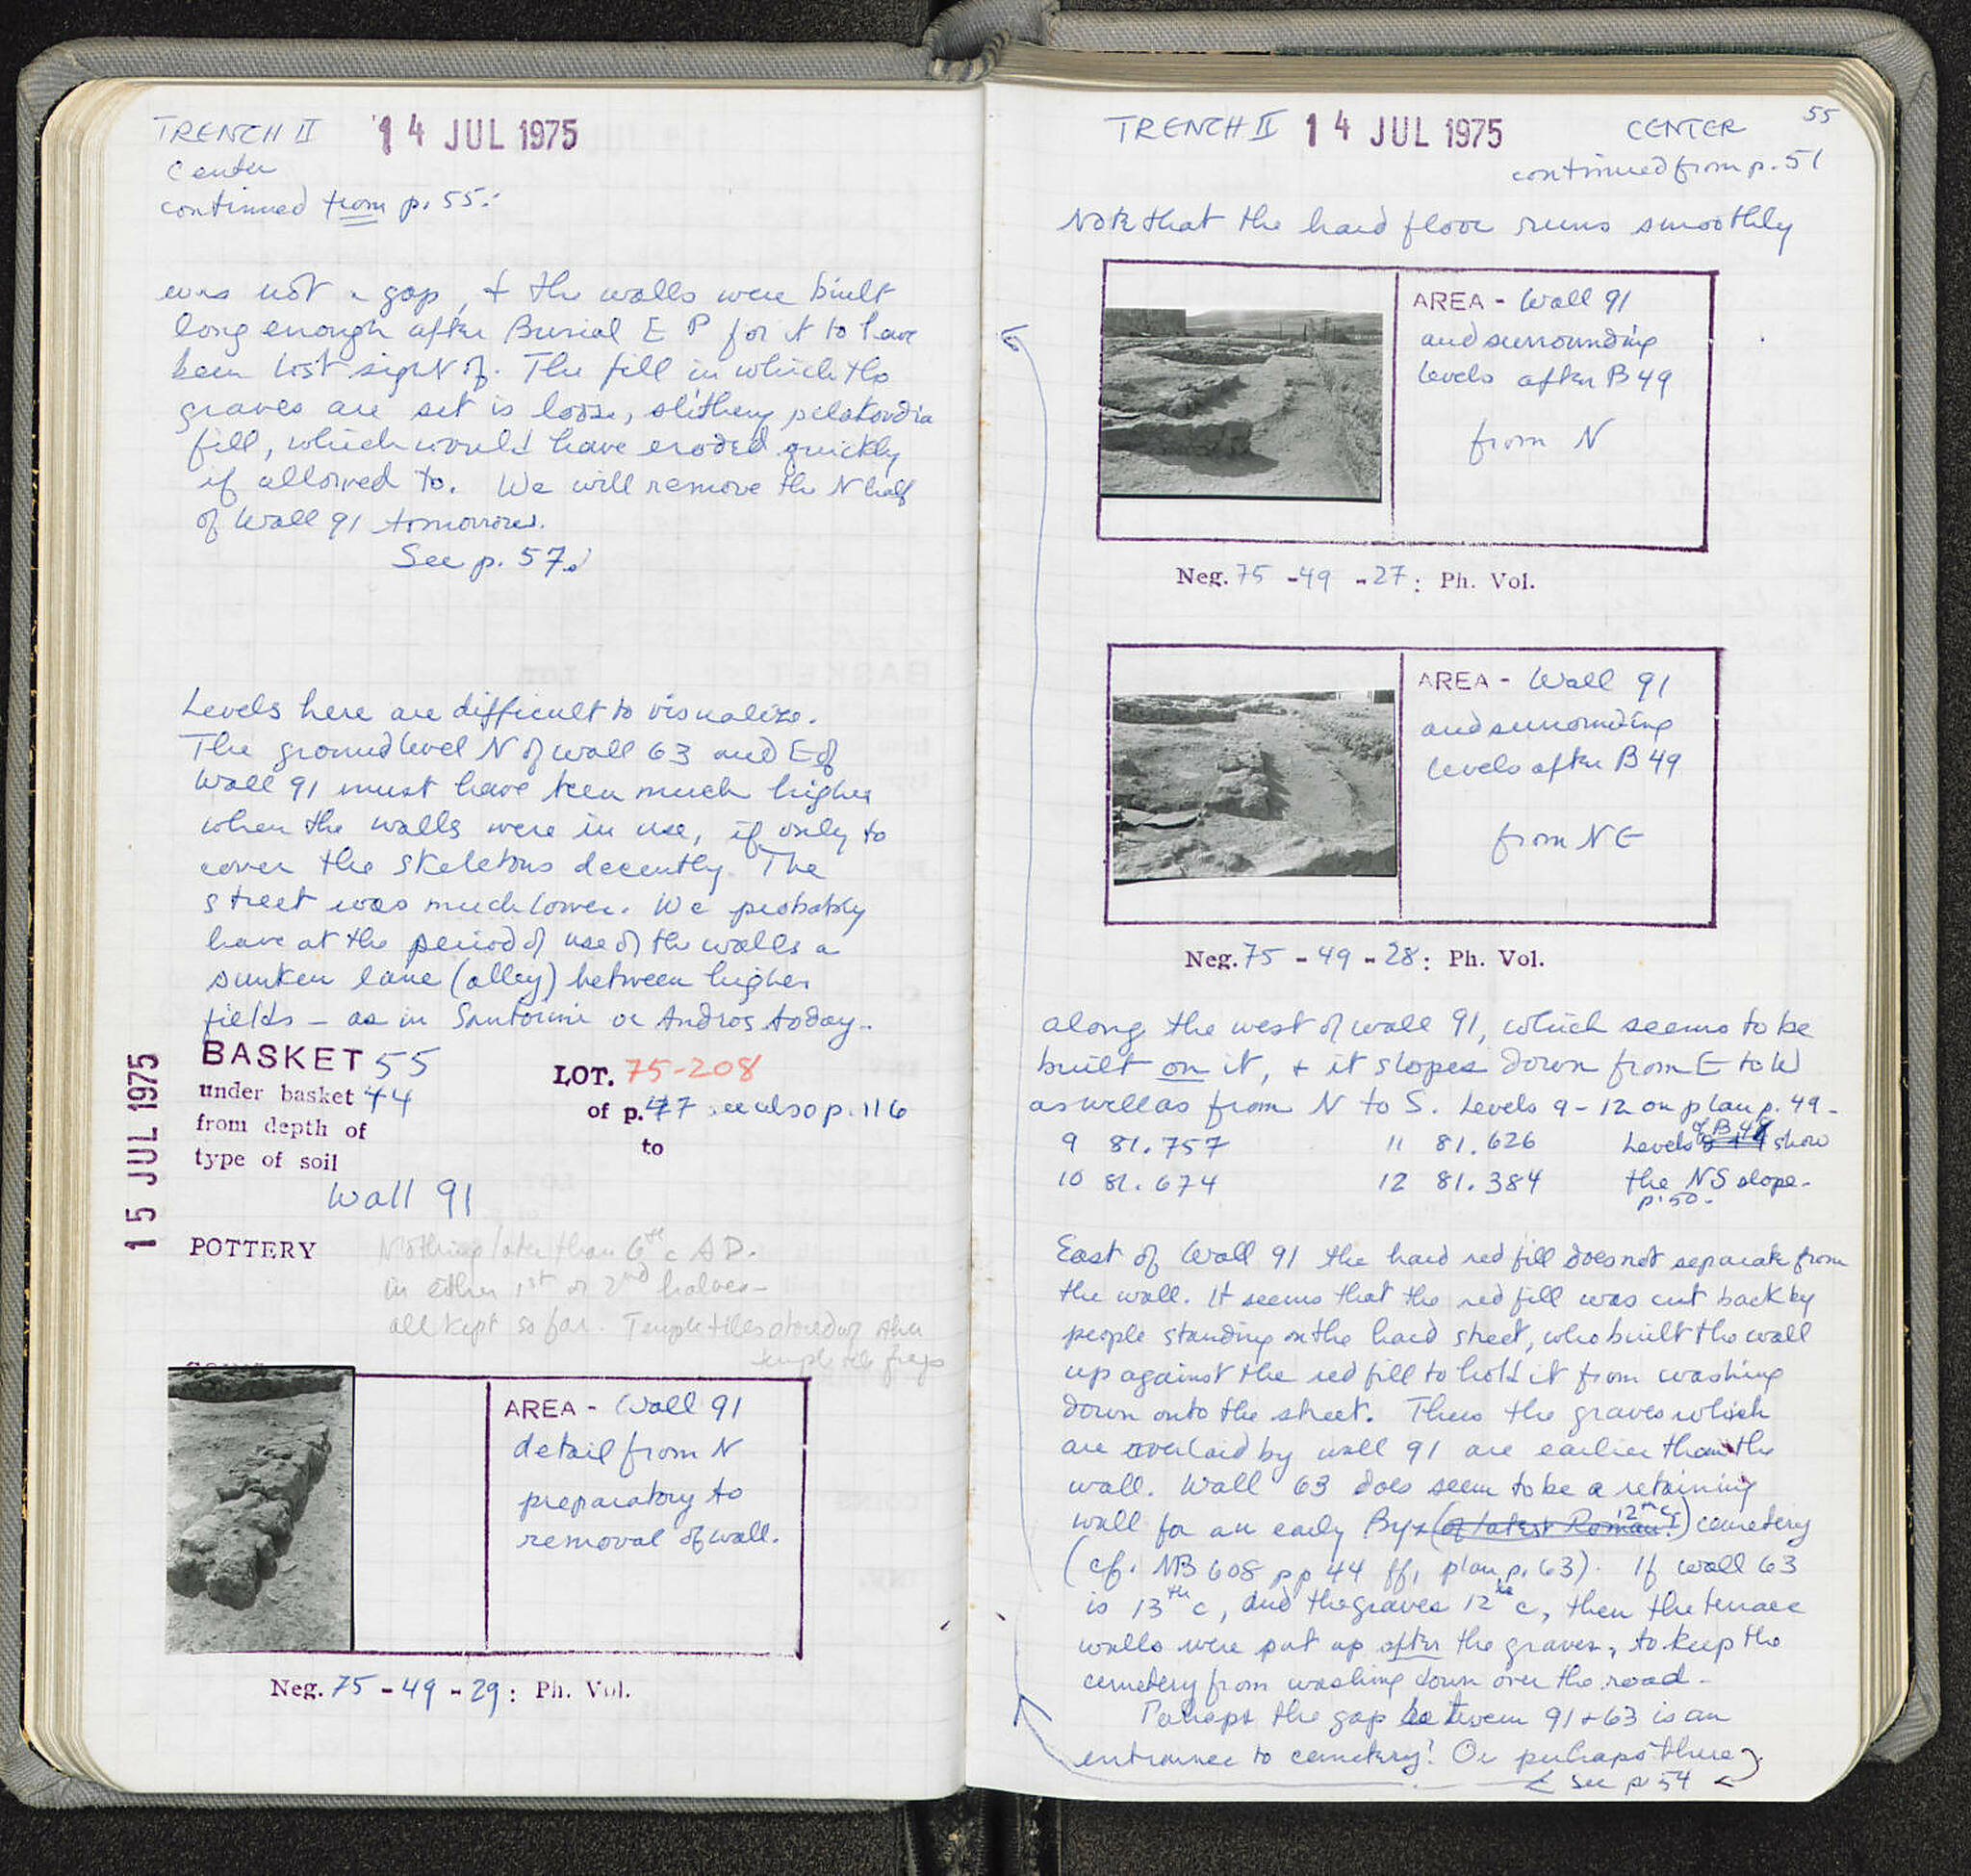 TRENCH II 14 JUL 1975
Center
continued from p. 55:
was not a gap, & the walls were built
long enough after Burial E P for it to have
been lost sight of. The fill in which the
graves are set is loose, slithery pelakoudia
fill, which would have eroded quickly
if allowed to. We will remove the N half
of Wall 91 tomorrow.
See p. 57.
Levels here are difficult to visualize.
The ground level N of wall 63 and E of
Wall 91 must have been much higher
when the walls were in use, if only to
cover the skeletons decently. The
street was much lower. We probably
have at the period of use of the walls a
sunken lane (alley) between higher
fields – as in Santorini or Andros today.
15 JUL 1975
BASKET 55 LOT. 75-208
under basket 44 of p. 47 see also p. 116
from depth of to
type of soil
Wall 91
POTTERY Nothing later than 6th c AD.
in either 1st or 2nd halves –
all kept so far. Temple tiles stored w. other
temple tile frags
AREA - Wall 91
detail from N
preparatory to
removal of wall.
Neg. 75 - 49 - 29 : Ph. Vol.
55
TRENCH II 14 JUL 1975 CENTER
continued from p. 51
Note that the hard floor runs smoothly
AREA - Wall 91
and surrounding
levels after B 49
from N
Neg. 75 - 49 - 27 : Ph. Vol.
AREA - Wall 91
and surrounding
levels after B 49
from NE
Neg. 75 - 49 - 28 : Ph. Vol.
along the west of wall 91, which seems to be
built on it, & it slopes down from E to W
as well as from N to S. Levels 9 - 12 on plan p. 49 -
9 81.757 11 81.626 Levels of B 48 show
10 81.674 12 81.384 the NS slope.
p. 50.
East of Wall 91 the hard red fill does not separate from
the wall. It seems that the red fill was cut back by
people standing on the hard street, who built the wall
up against the red fill to hold it from washing
down onto the street. Thus the graves which
are overlaid by wall 91 are earlier than the
wall. Wall 63 does seem to be a retaining
wall for an early Byz (of latest Roman?) 12th c cemetery
(cf. NB 608 pp 44 ff, plan p. 63). If wall 63
is 13th c, and the graves 12th c, then the terrace
walls were put up after the graves, to keep the
cemetery from washing down over the road.
Perhaps the gap between 91 & 63 is an
entrance to cemetery? Or perhaps there
see p 54